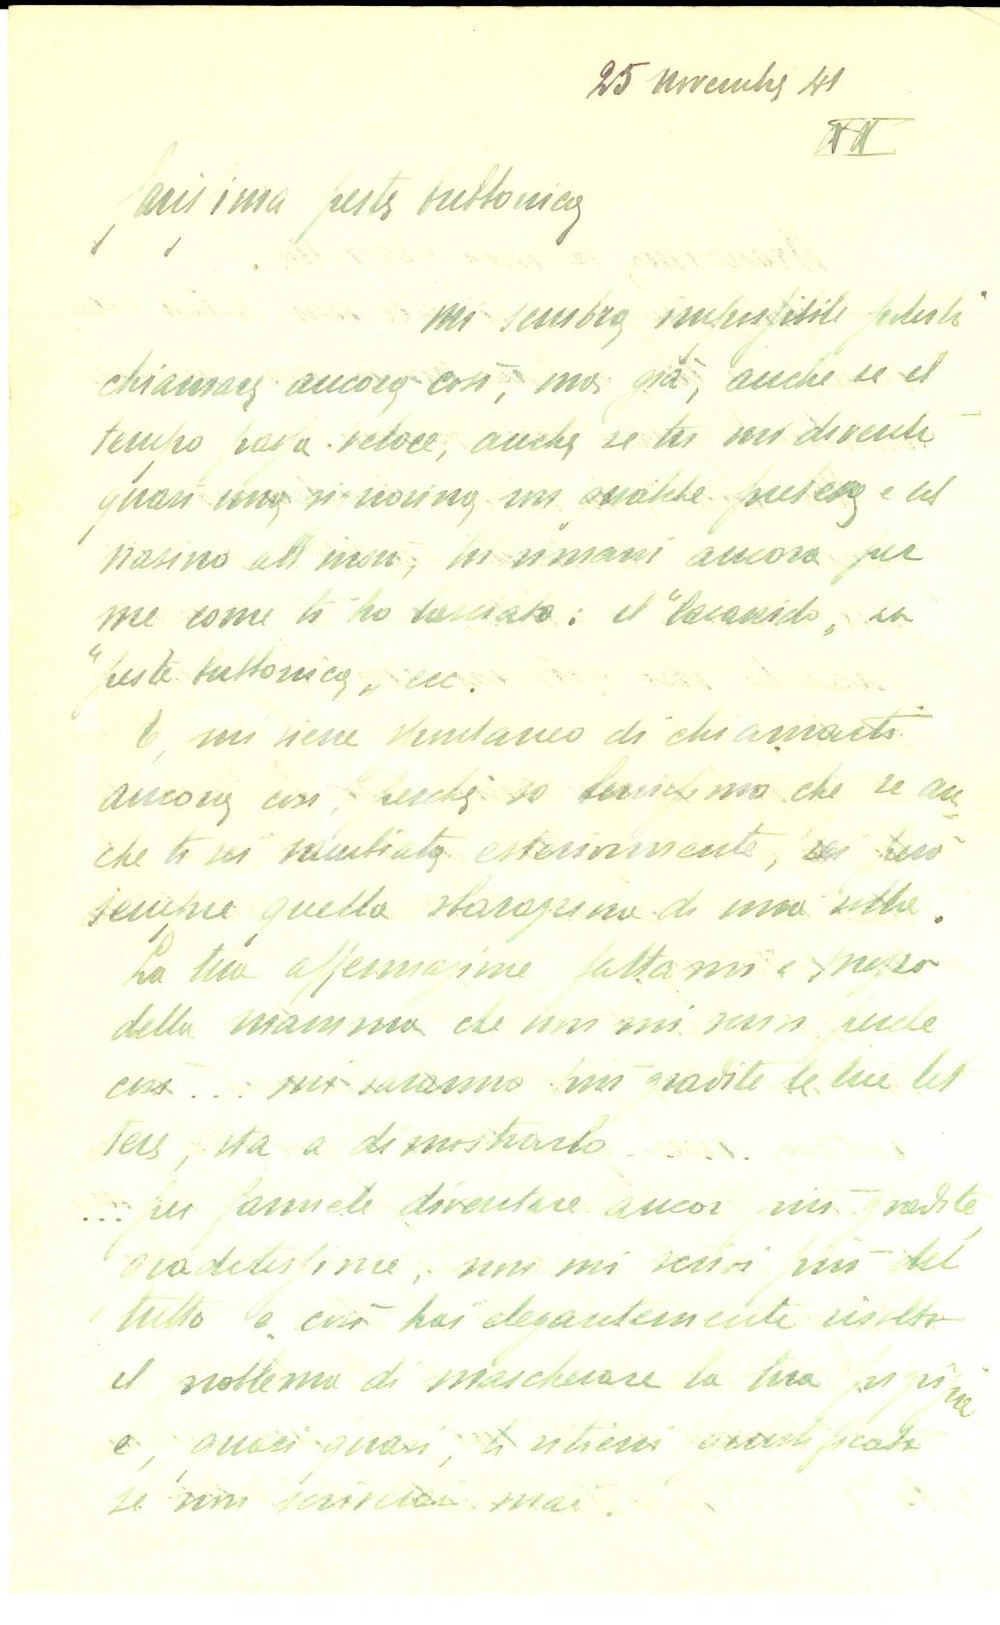 25 novembre 41
XX
Carissima peste bubbonica
Mi sembra impossibile poterti
chiamare ancora così, ma già, anche se il
tempo passa veloce, anche se tu mi diventi
quasi una signorina un qualche e il
nasino all'insù, tu rimani ancora per
me come ti ho lasciato: il " „ la
"peste bubbonica„ ecc.
E, mi viene spontaneo di chiamarti
ancora così, perchè so benissimo che se an-
che ti sei cambiata esteriormente, sei però
sempre quella sbarazzina di una volta.
La tua affermazione fattami a mezzo
della mamma che non mi scrivi perchè
così ... mi saranno più gradite le tue let
tere, sta a dimostrarlo .....
... per farmele diventare ancor più gradite,
graditissime, non mi scrivi più del
tutto e così hai elegantemente risolto
il problema di mascherare la tua pigrizia
e, quasi quasi, ti ritieni giustificata
se non scriverai mai.